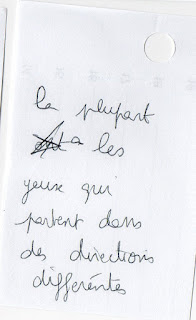 la plupart
a les
yeux qui
partent dans
des directions
différentes